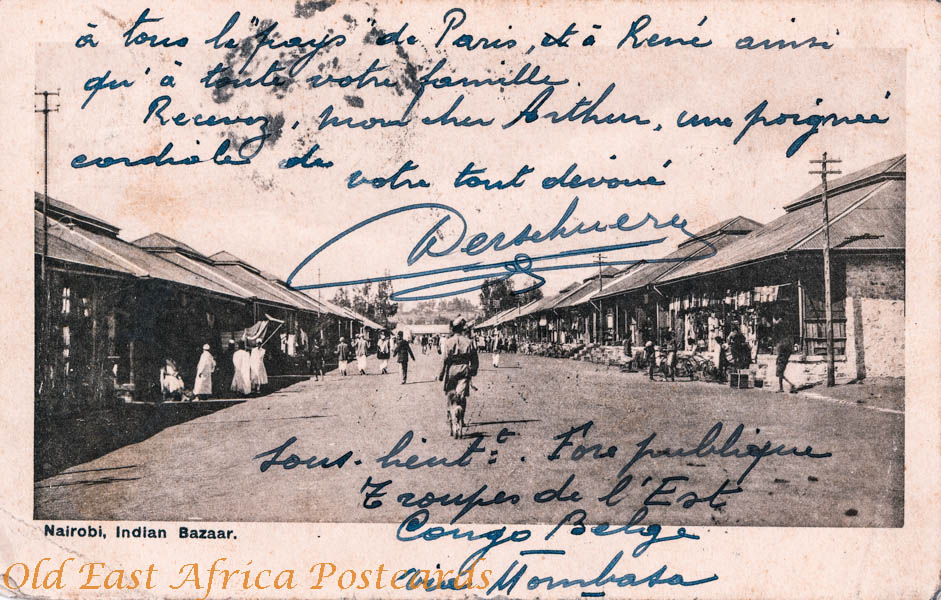 à tous le "pays" de Paris, et à René ainsi
qu'à toute votre famille.
Recevez, mon cher Arthur, une poignée
cordiale de
votre tout dévoué
Sous-lieutt. Fore publique
Troupes de l'Est
Congo Belge
via Mombasa
Nairobi, Indian Bazaar.
Old East Africa Postcards